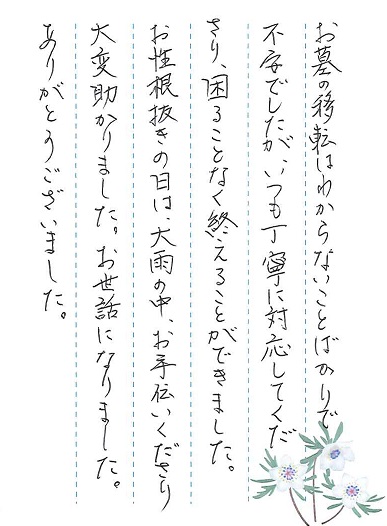 お墓の移転はわからないことばかりで
不安でしたが、いつも丁寧に対応してくだ
さり、困ることなく終えることができました。
お性根抜きの日は、大雨の中、お手伝いくださり
大変助かりました。お世話になりました。
ありがとうございました。